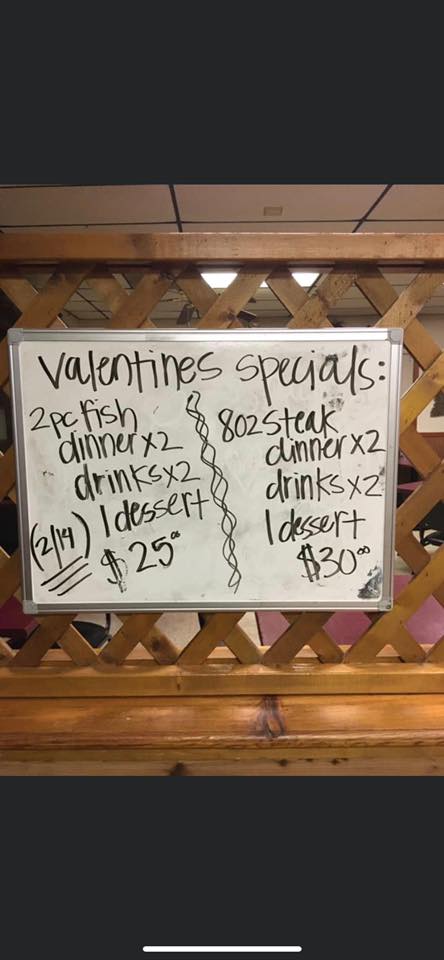 Valentines Specials:
2pc fish
dinner x2
drinks x2
1 dessert
(2/14)
$25.00
8oz Steak
dinner x2
drinks x2
1 dessert
$30.00